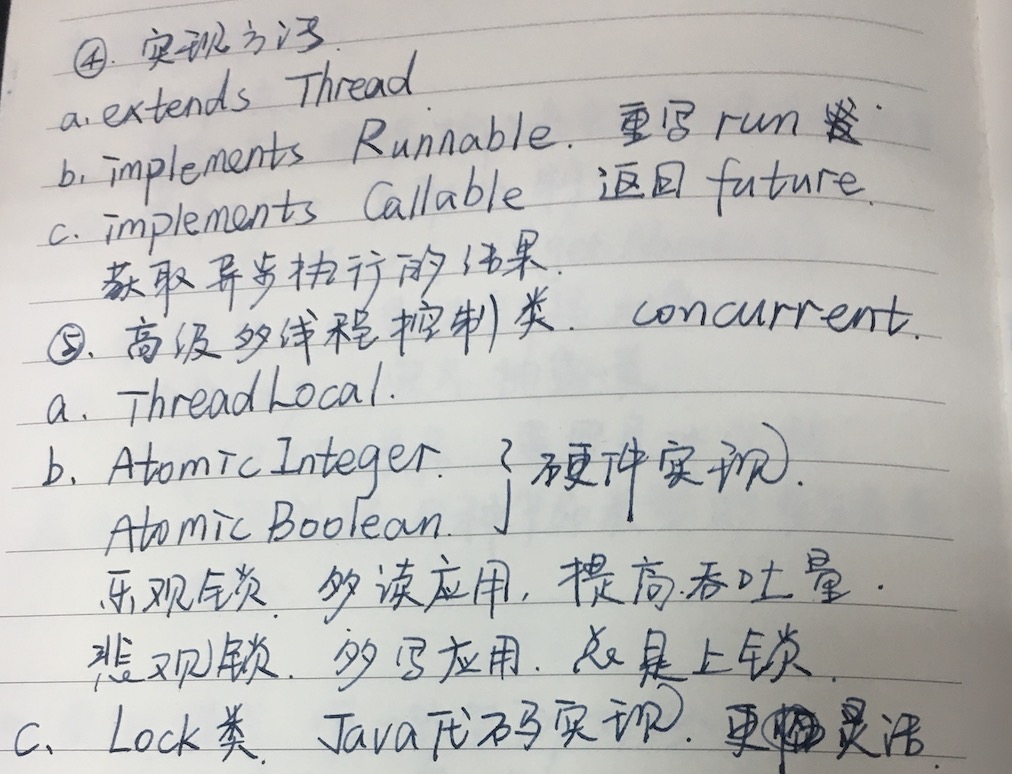 ④. 实现方法.
a. extends Thread.
b. implements Runnable. 重写 run
c. implements Callable 返回 future.
获取异步执行的结果.
⑤. 高级多线程控制类. concurrent.
a. ThreadLocal.
b. Atomic Integer. } 硬件实现.
Atomic Boolean.
乐观锁. 多读应用, 提高吞吐量.
悲观锁. 多写应用. 总是上锁.
c. Lock类. Java代码实现. 更灵活.